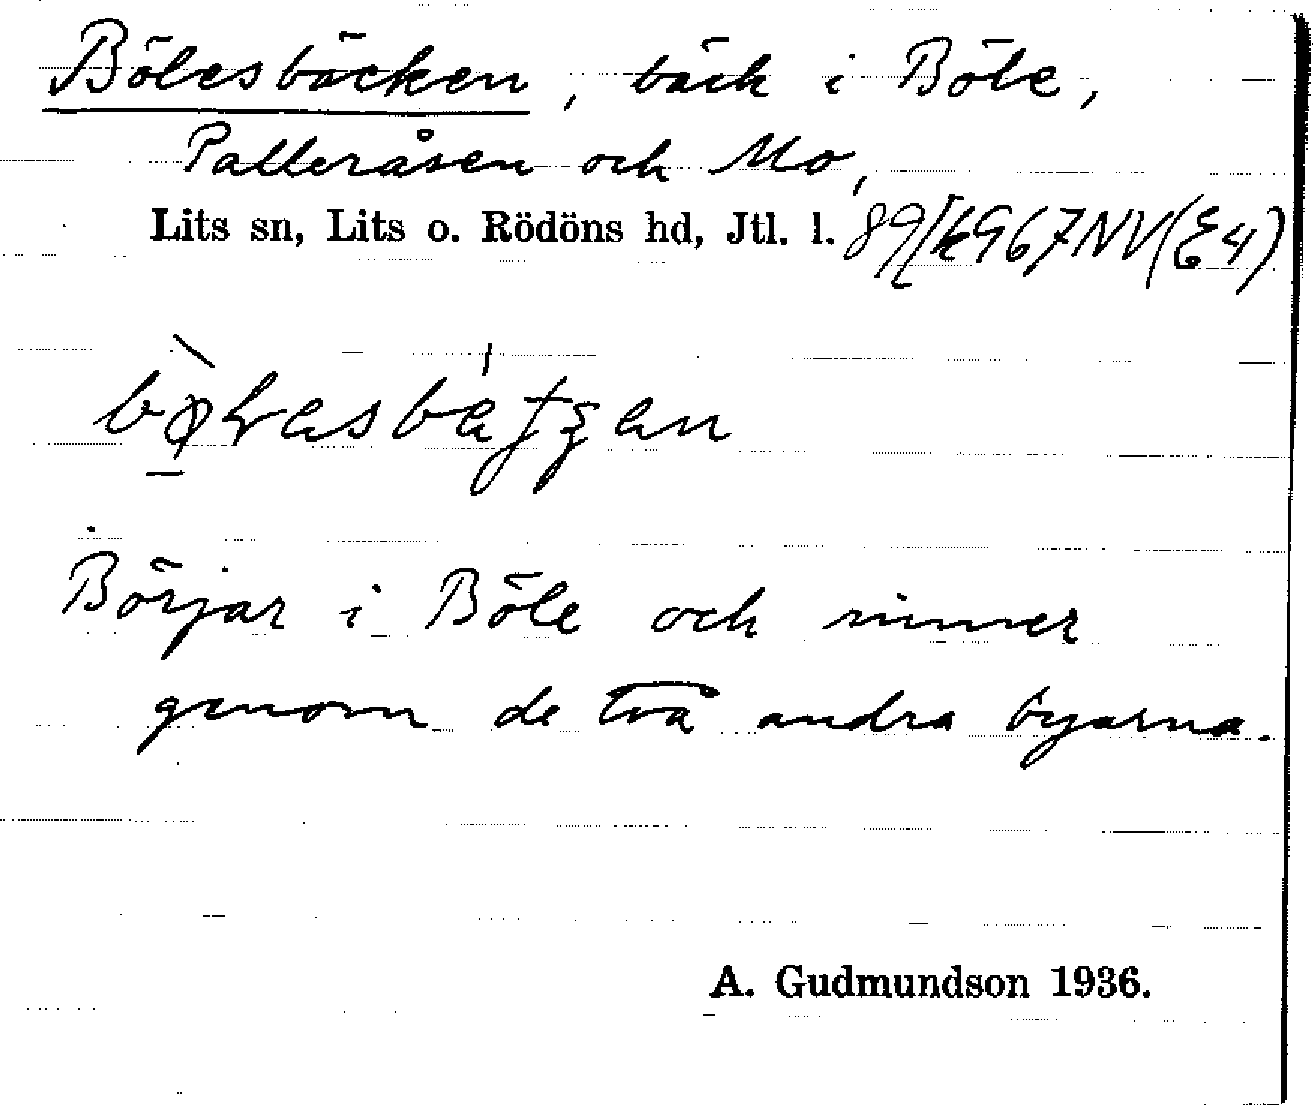 Bölesbäcken, bäck i Böle,
Palleråsen och Mo,
Lits sn, Lits o. Rödöns hd, Jtl. l.
Börjar i Böle och rinner
genom de två andra byarna.
A. Gudmundson 1936.